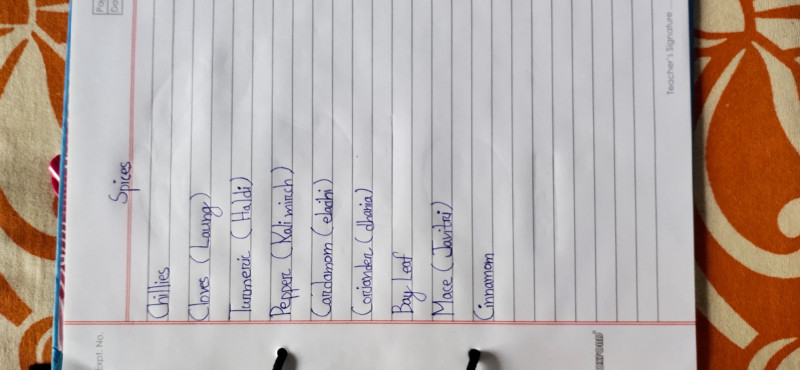 Spices
Chillies
Cloves (Laung)
Turmeric (Haldi)
Pepper (Kali mirch)
Cardamom (elaichi)
Coriander (dhania)
Bay Leaf
Mace (Javitri)
Cinnamom
Teacher's Signature
Expt. No.